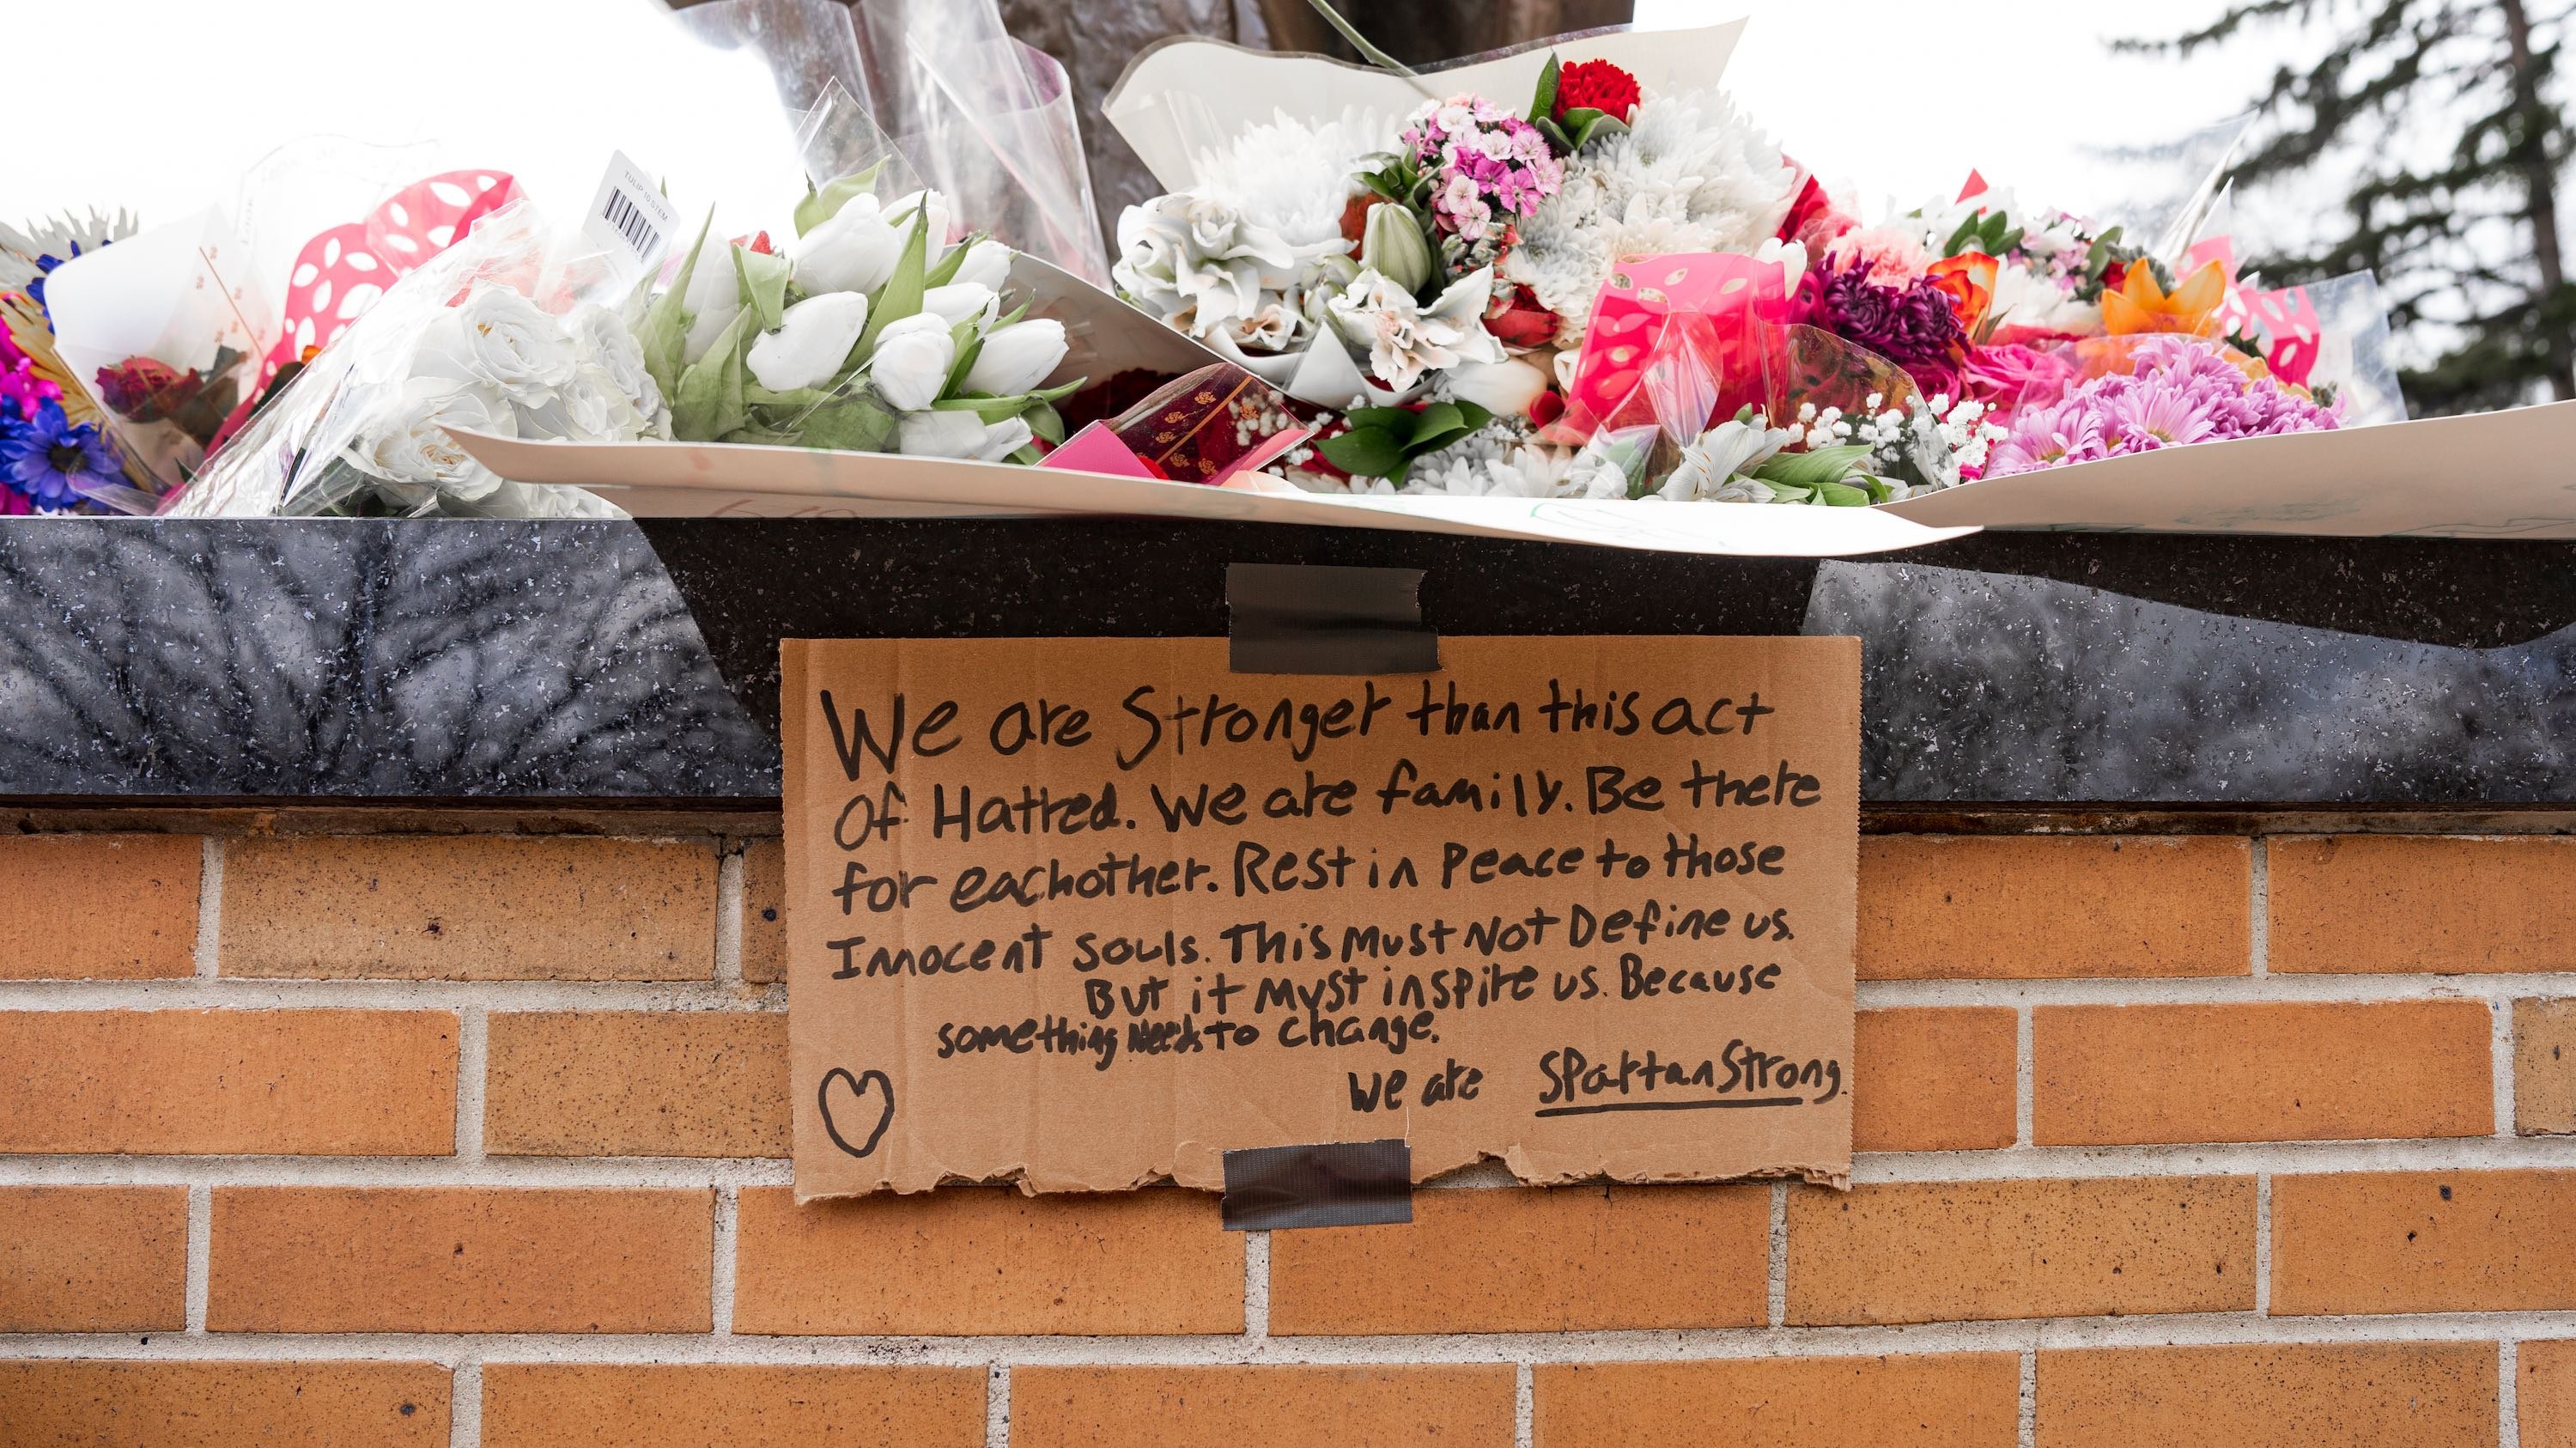 TULIP 10 STEM
We are Stronger than this act
of Hatred. We are family. Be there
for eachother. Rest in Peace to those
Innocent souls. This Must Not Define us.
But it Must inspire us. Because
something Needs to change.
We are SPartan Strong.